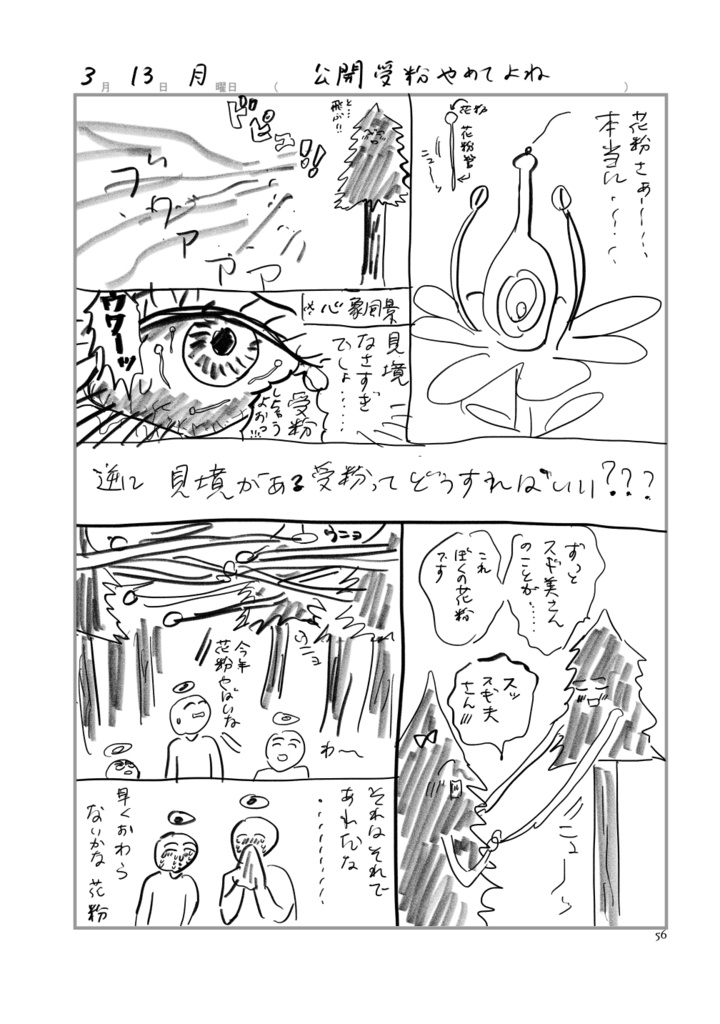 3月 13日 月曜日 ( 公開受粉やめてよね )
花粉さぁ〜……
本当に……
花粉
花粉管
ニュ〜ッ
と…
飛ぶ!!
ドピュ!!
ブワァアア
※心象風景
見境
なさすぎ
でしょ……
ウワーッ
受粉
しちゃう
よぉっ!!!
逆に 見境がある受粉ってどうすればいい???
ずっと
スギ美さん
のことが……
これ
ぼくの花粉
です
スッ
スギ夫
せん!!!
ニュ〜ッ
ウニョ
ウニョ
今年
花粉やばいな
わ〜
それはそれで
あれだな
………
早くおわら
ないかな 花粉
56